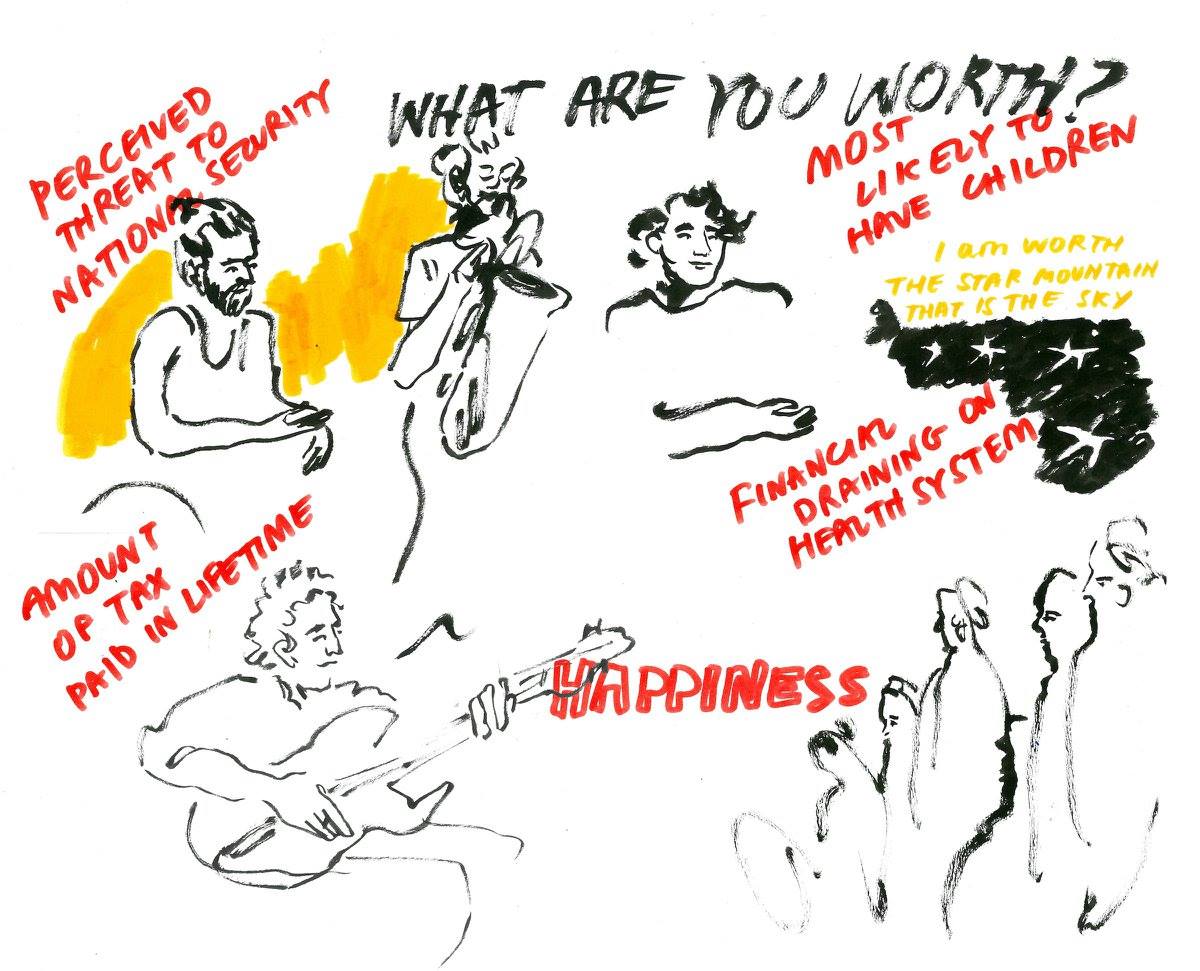 WHAT ARE YOU WORTH?
PERCEIVED
THREAT TO
NATIONAL SECURITY
MOST
LIKELY TO
HAVE CHILDREN
I am WORTH
THE STAR MOUNTAIN
THAT IS THE SKY
FINANCIAL
DRAINING ON
HEALTH SYSTEM
AMOUNT
OF TAX
PAID IN LIFETIME
HAPPINESS